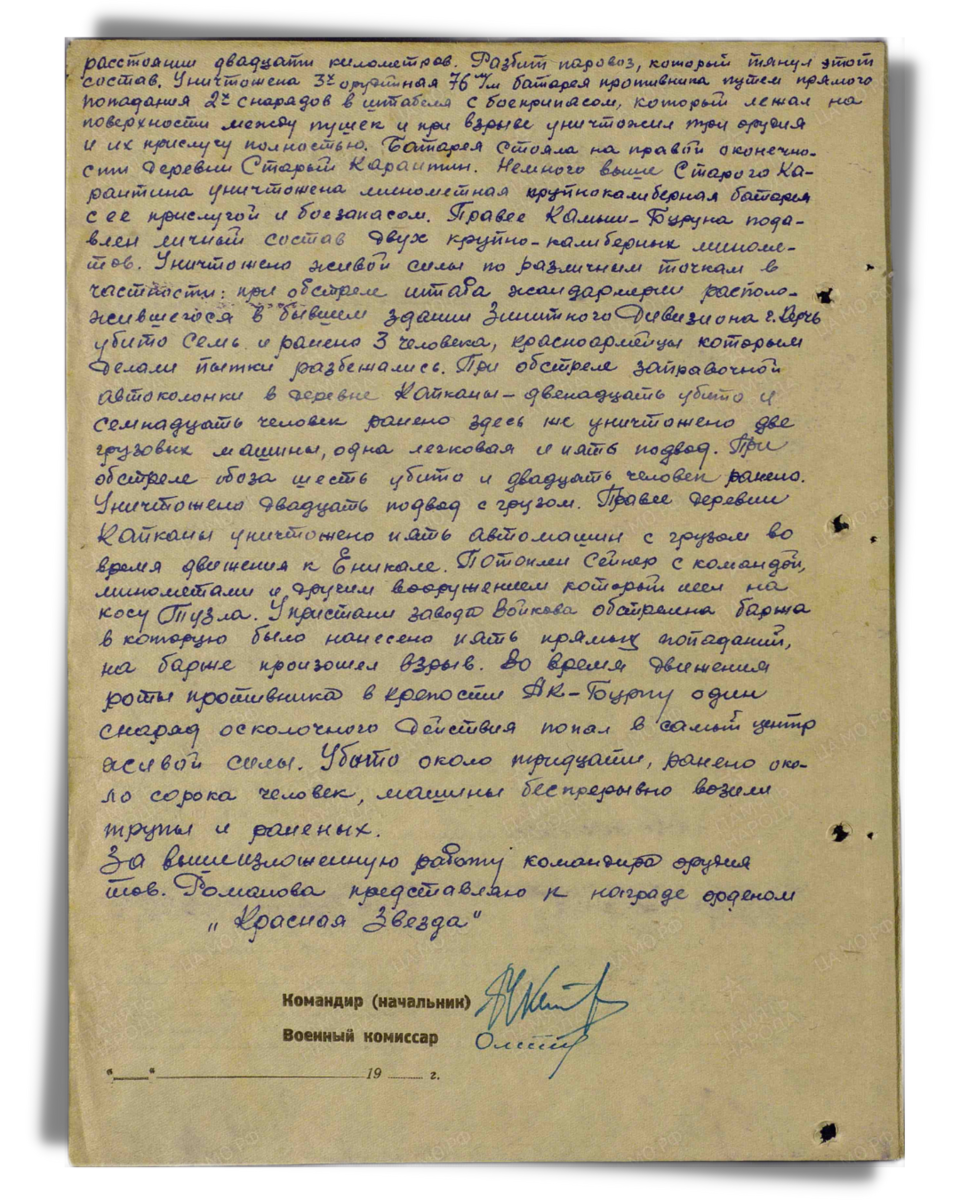 расстоянии двадцати километров. Разбит паровоз, который тянул этот
состав. Уничтожена 3х орудийная 76 м/м батарея противника путем прямого
попадания 2х снарядов в штабеля с боеприпасом, который лежал на
поверхности между пушек и при взрыве уничтожил три орудия
и их прислугу полностью. Батарея стояла на правой оконечно-
сти деревни Старый Карантин. Немного выше Старого Ка-
рантина уничтожена минометная крупнокалиберная батарея
с ее прислугой и боезапасом. Правее Камыш-Буруна пода-
влен личный состав двух крупно-калиберных миноме-
тов. Уничтожено живой силы по различным точкам в
частности: при обстреле штаба жандармерии располо-
жившегося в бывшем здании Зенитного Дивизиона г. Керчь
убито семь и ранено 3 человека, красноармейцы которым
делали пытки разбежались. При обстреле заправочной
автоколонки в деревне Капканы - двенадцать убито и
семнадцать человек ранено здесь же уничтожено две
грузовых машины, одна легковая и пять подвод. При
обстреле обоза шесть убито и двадцать человек ранено.
Уничтожено двадцать подвод с грузом. Правее деревни
Капканы уничтожено пять автомашин с грузом во
время движения к Еникале. Потоплен сейнер с командой,
минометами и другим вооружением который шел на
косу Тузла. У пристани завода Войкова обстреляна баржа
в которую было нанесено пять прямых попаданий,
на барже произошел взрыв. Во время движения
роты противника в крепости Ак-Буруну один
снаряд осколочного действия попал в самый центр
живой силы. Убито около тридцати, ранено око-
ло сорока человек, машины беспрерывно возили
трупы и раненых.
За вышеизложенную работу командира орудия
тов. Романова представляю к награде орденом
„Красная Звезда"
Командир (начальник)
Военный комиссар
"___" 19 ___ г.